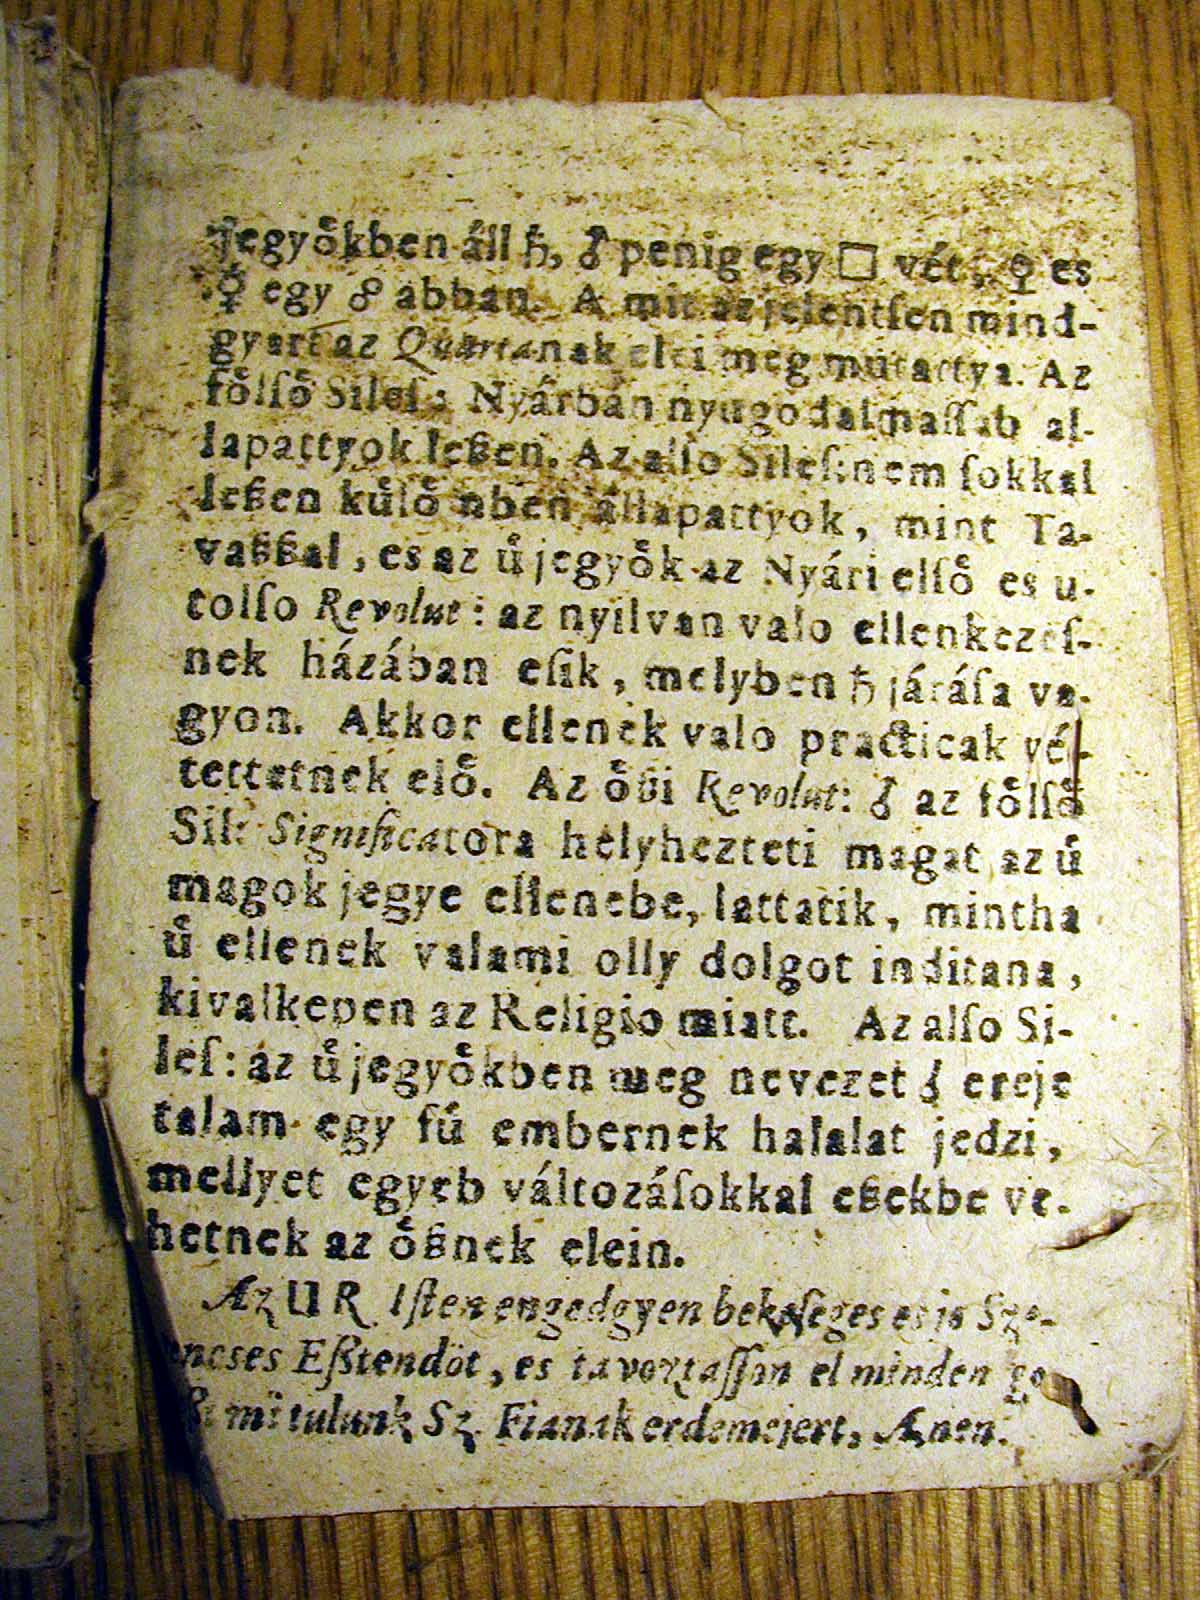 jegyo̊kben áll ♄, ♂ penig egy □ vét, ♀ es
☿ egy ☍ abban. A mit az jelentſen mind-
gyart az Quartanak elei meg mutattya. Az
fo̊lſo̊ Sileſ: Nyárban nyugodalmaſſab al-
lapattyok leßen. Az alſo Sileſ: nem ſokkal
leßen ku̇lo̊nben állapattyok, mint Ta-
vaßßal, es az ů jegyo̊k az Nyári elſo̊ es u-
tolſo Revolut: az nyilvan valo ellenkezeſ-
nek házában eſik, melyben ♄ járáſa va-
gyon. Akkor ellenek valo practicak vé-
tettetnek elo̊. Az o̊ßi Revolut: ♂ az fo̊lſo̊
Sil: Significatora helyhezteti magat az ů
magok jegye ellenebe, lattatik, mintha
ů ellenek valami olly dolgot inditana,
kivalkepen az Religio miatt. Az alſo Si-
leſ: az ů jegyo̊kben meg nevezet ♂ ereje
talam egy fů embernek halalat jedzi,
mellyet egyeb változáſokkal eßekbe ve-
hetnek az o̊ßnek elein.
Az UR Iſten engedgyen bekeſeges es jo Sze-
encses Eßtendöt, es tavoztaſſon el minden
mi tulunk Sz. Fianak erdemejert, Amen.